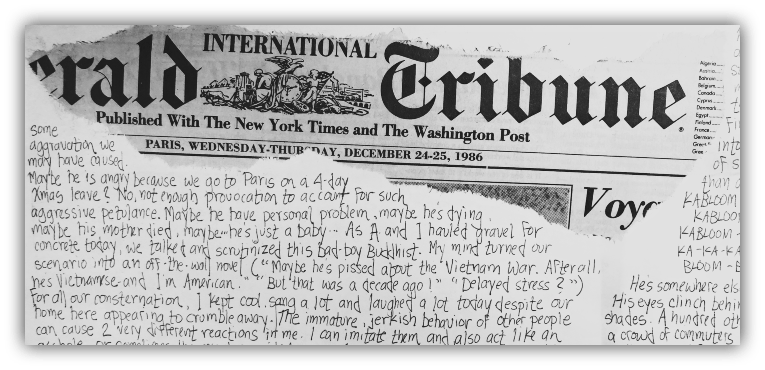 erald INTERNATIONAL Tribune
Published With The New York Times and The Washington Post
PARIS, WEDNESDAY-THURSDAY, DECEMBER 24-25, 1986
Algeria
Austria
Bahrain
Belgium
Canada
Cyprus
Denmark
Egypt
Finland
France
German
Great
Gree
Voya
some
aggravation we
may have caused.
Maybe he is angry because we go to Paris on a 4-day
Xmas leave? No, not enough provocation to account for such
aggressive petulance. Maybe he have personal problem, maybe he's dying,
maybe his mother died, maybe--he's just a baby... As A and I hauled gravel for
concrete today, we talked and scrutinized this bad-boy Buddhist. My mind turned our
scenario into an off-the-wall novel ("Maybe he's pissed about the Vietnam War. After all,
he's Vietnamese and I'm American." "But that was a decade ago!" "Delayed stress?")
For all our consternation, I kept cool, sang a lot and laughed a lot today despite our
home here appearing to crumble away. The immature, jerkish behavior of other people
can cause 2 very different reactions in me. I can imitate them and also act like an
into
of s
than a
KABLOOM
KABLOO
KABLOOM
KA-KA-KA
BLOOM-B
He's somewhere els
His eyes clinch behin
shades. A hundred oth
a crowd of commuters